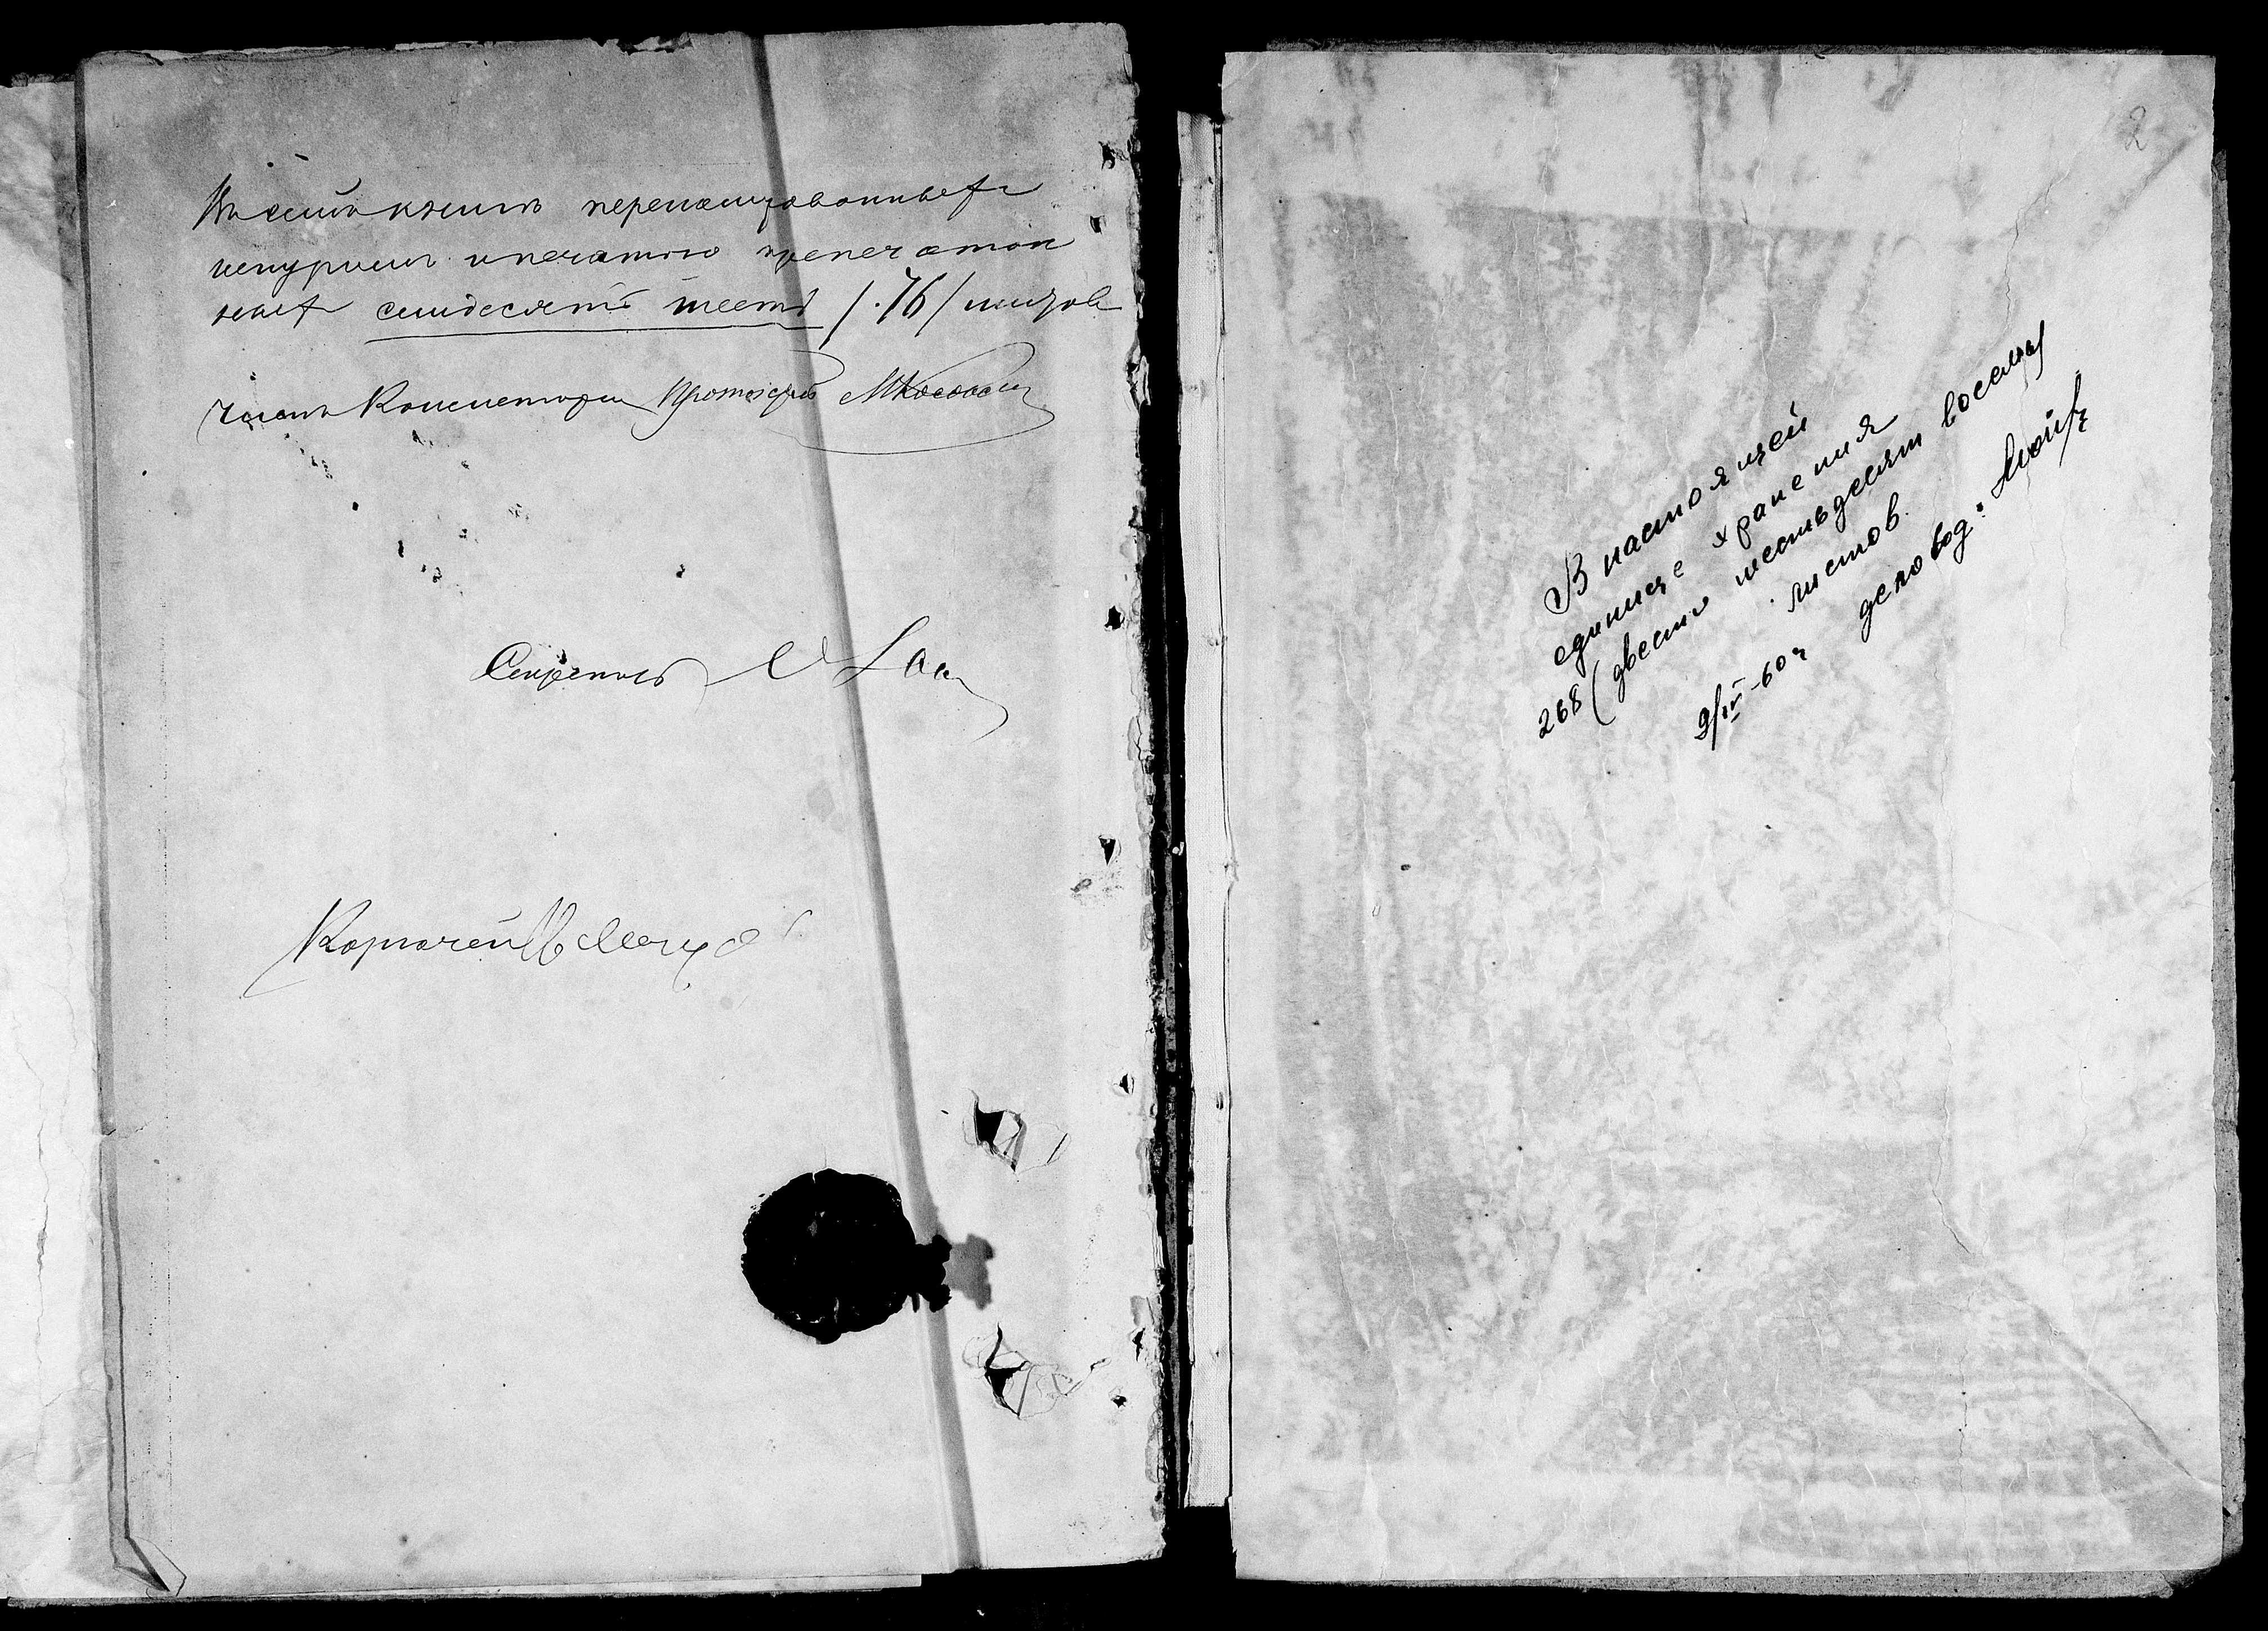 Въ сей книгѣ перенумерованныхъ
шнуромъ и печатью припечатан
ныхъ семьдесятъ шесть /.76/ листовъ
Членъ Консисторіи Протоіерей
Секретарь
Казначей
2
В настоящей
единице хранения
268 (двести шестьдесят восемь)
листов.
9/IV-60 г делов­од: